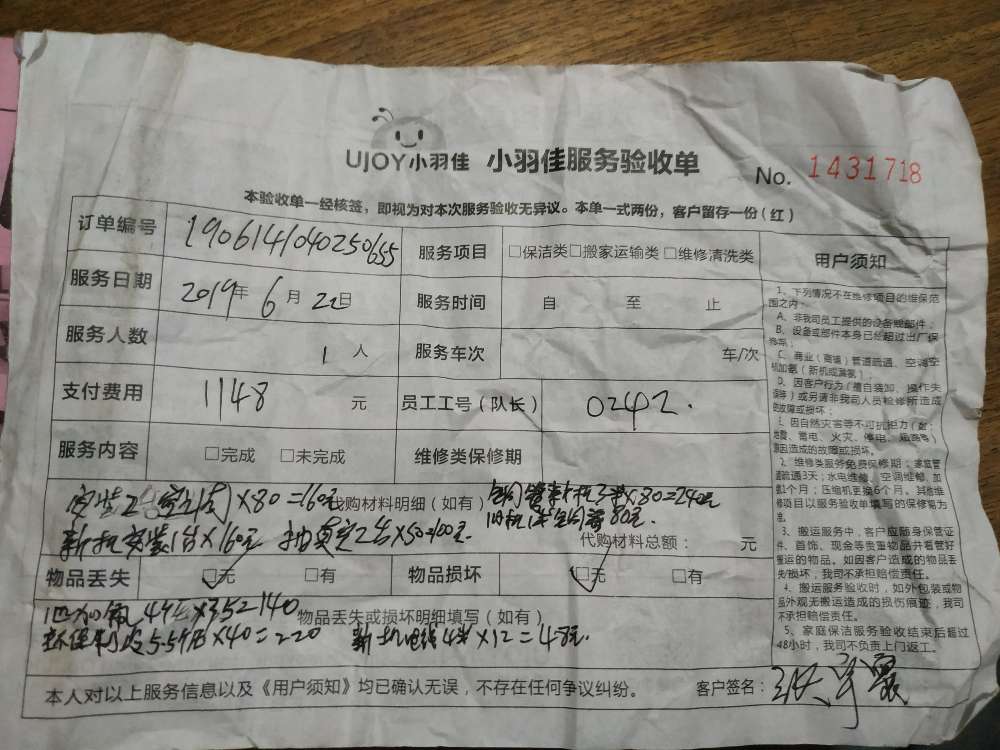 UJOY小羽佳 小羽佳服务验收单 No. 1431718
本验收单一经核签，即视为对本次服务验收无异议。本单一式两份，客户留存一份（红）
订单编号 190614104025065 服务项目 □保洁类□搬家运输类□维修清洗类
服务日期 2019年6月22日 服务时间 自 至 止
服务人数 1人 服务车次 车/次
支付费用 1148元 员工工号（队长） 0242.
服务内容 □完成 □未完成 维修类保修期
×80=160元 代购材料明细（如有） ×80=240元
新机安装1台×160元 抽真空2台×50=100元. 80元.
代购材料总额： 元
物品丢失 ☑无 □有 物品损坏 ☑无 □有
140 物品丢失或损坏明细填写（如有）
×40=220 新机电线4米×12=48元.
本人对以上服务信息以及《用户须知》均已确认无误，不存在任何争议纠纷。 客户签名：
用户须知
1、下列情况不在维修项目的维保范
围之内：
A、非我司员工提供的设备或部件；
B、设备或部件本身已经超过出厂保
修期；
C、商业（商铺）管道疏通、空调空
机加氨（新机或漏氨）；
D、因客户行为（擅自装卸、操作失
误等）或另请非我司人员检修所造成
的故障或损坏；
E、因自然灾害等不可抗拒力（如：
地震、雷电、火灾、停电、短路等）
原因造成的故障或损坏。
2、维修类服务免费保修期：家庭管
道疏通3天；水电维修、空调维修、加
1个月；压缩机更换6个月。其他维
修项目以服务验收单填写的保修期为
准。
3、搬运服务中，客户应随身保管证
件、首饰、现金等贵重物品并看管好
搬运的物品。如因客户造成的物品丢
失/损坏，我司不承担赔偿责任。
4、搬运服务验收时，如外包装或物
品外观无搬运造成的损伤痕迹，我司
不承担赔偿责任。
5、家庭保洁服务验收结束后超过
48小时，我司不负责上门返工。